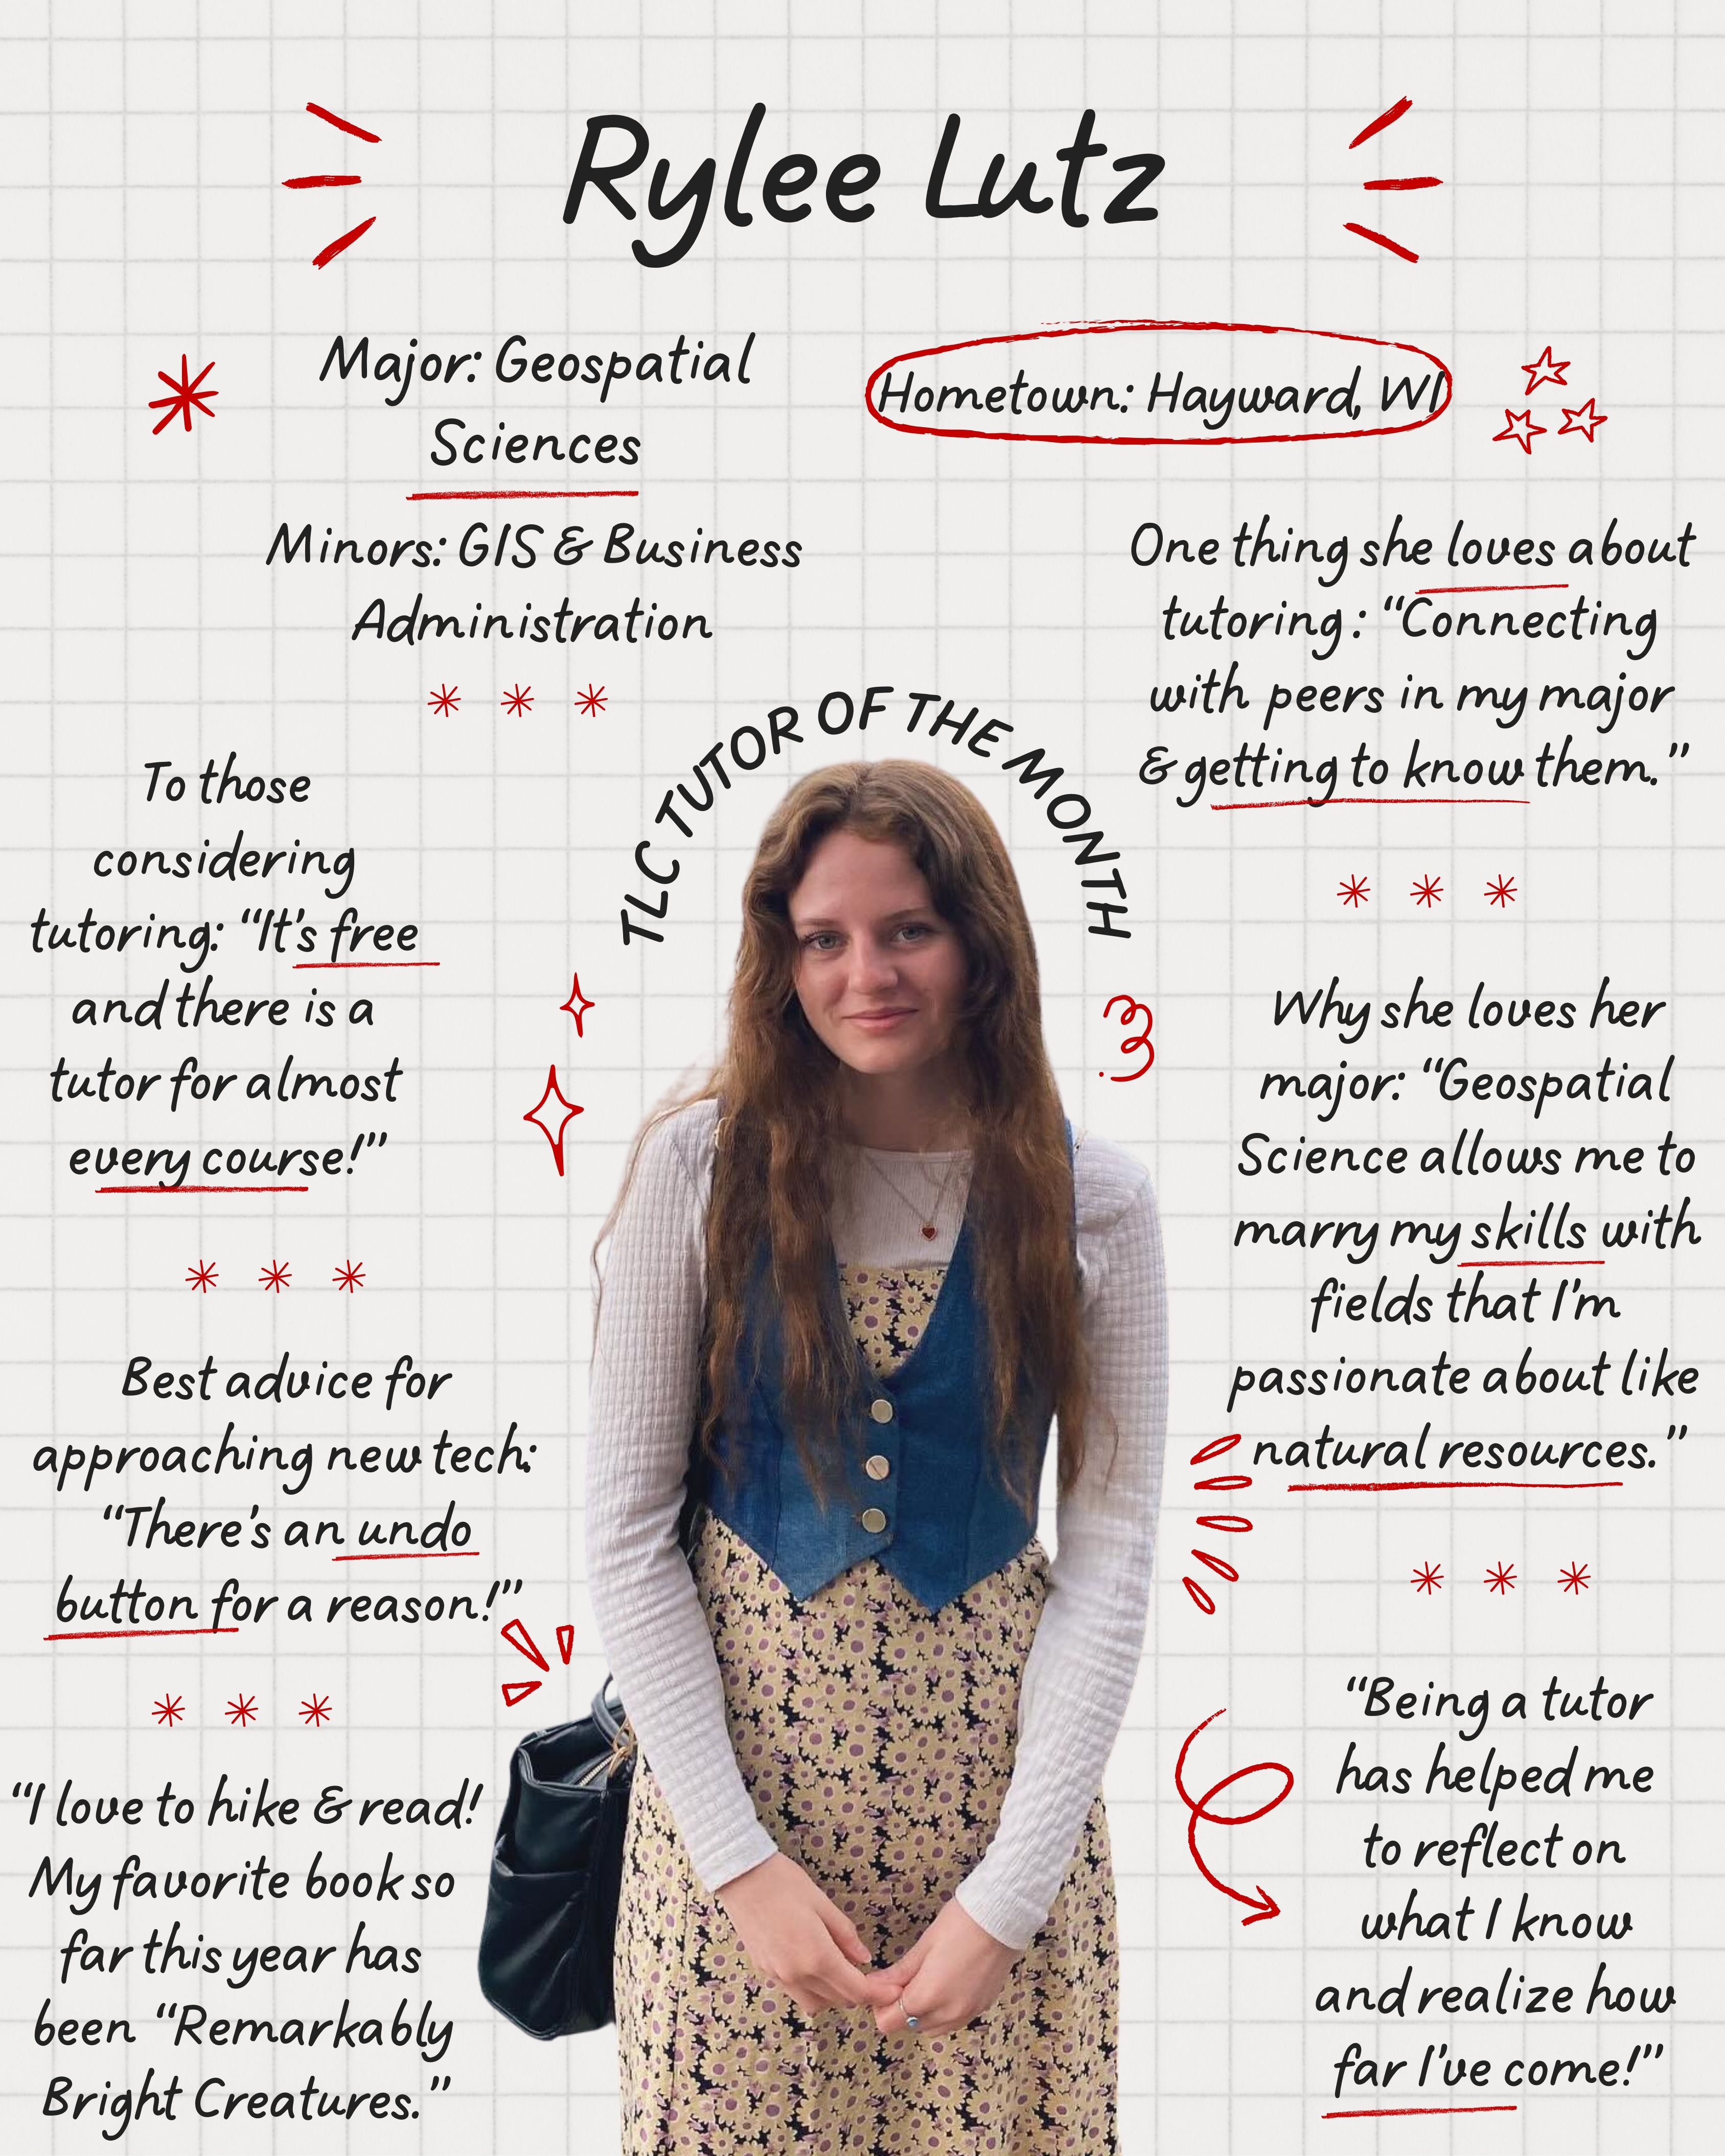 Rylee Lutz
Major: Geospatial
Sciences
Hometown: Hayward, WI
Minors: GIS & Business
Administration
One thing she loves about
tutoring: “Connecting
with peers in my major
& getting to know them.”
TLC TUTOR OF THE MONTH
To those
considering
tutoring: “It's free
and there is a
tutor for almost
every course!”
Why she loves her
major: “Geospatial
Science allows me to
marry my skills with
fields that I'm
passionate about like
natural resources.”
Best advice for
approaching new tech:
“There's an undo
button for a reason!”
“Being a tutor
has helped me
to reflect on
what I know
and realize how
far I've come!”
“I love to hike & read!
My favorite book so
far this year has
been “Remarkably
Bright Creatures.”